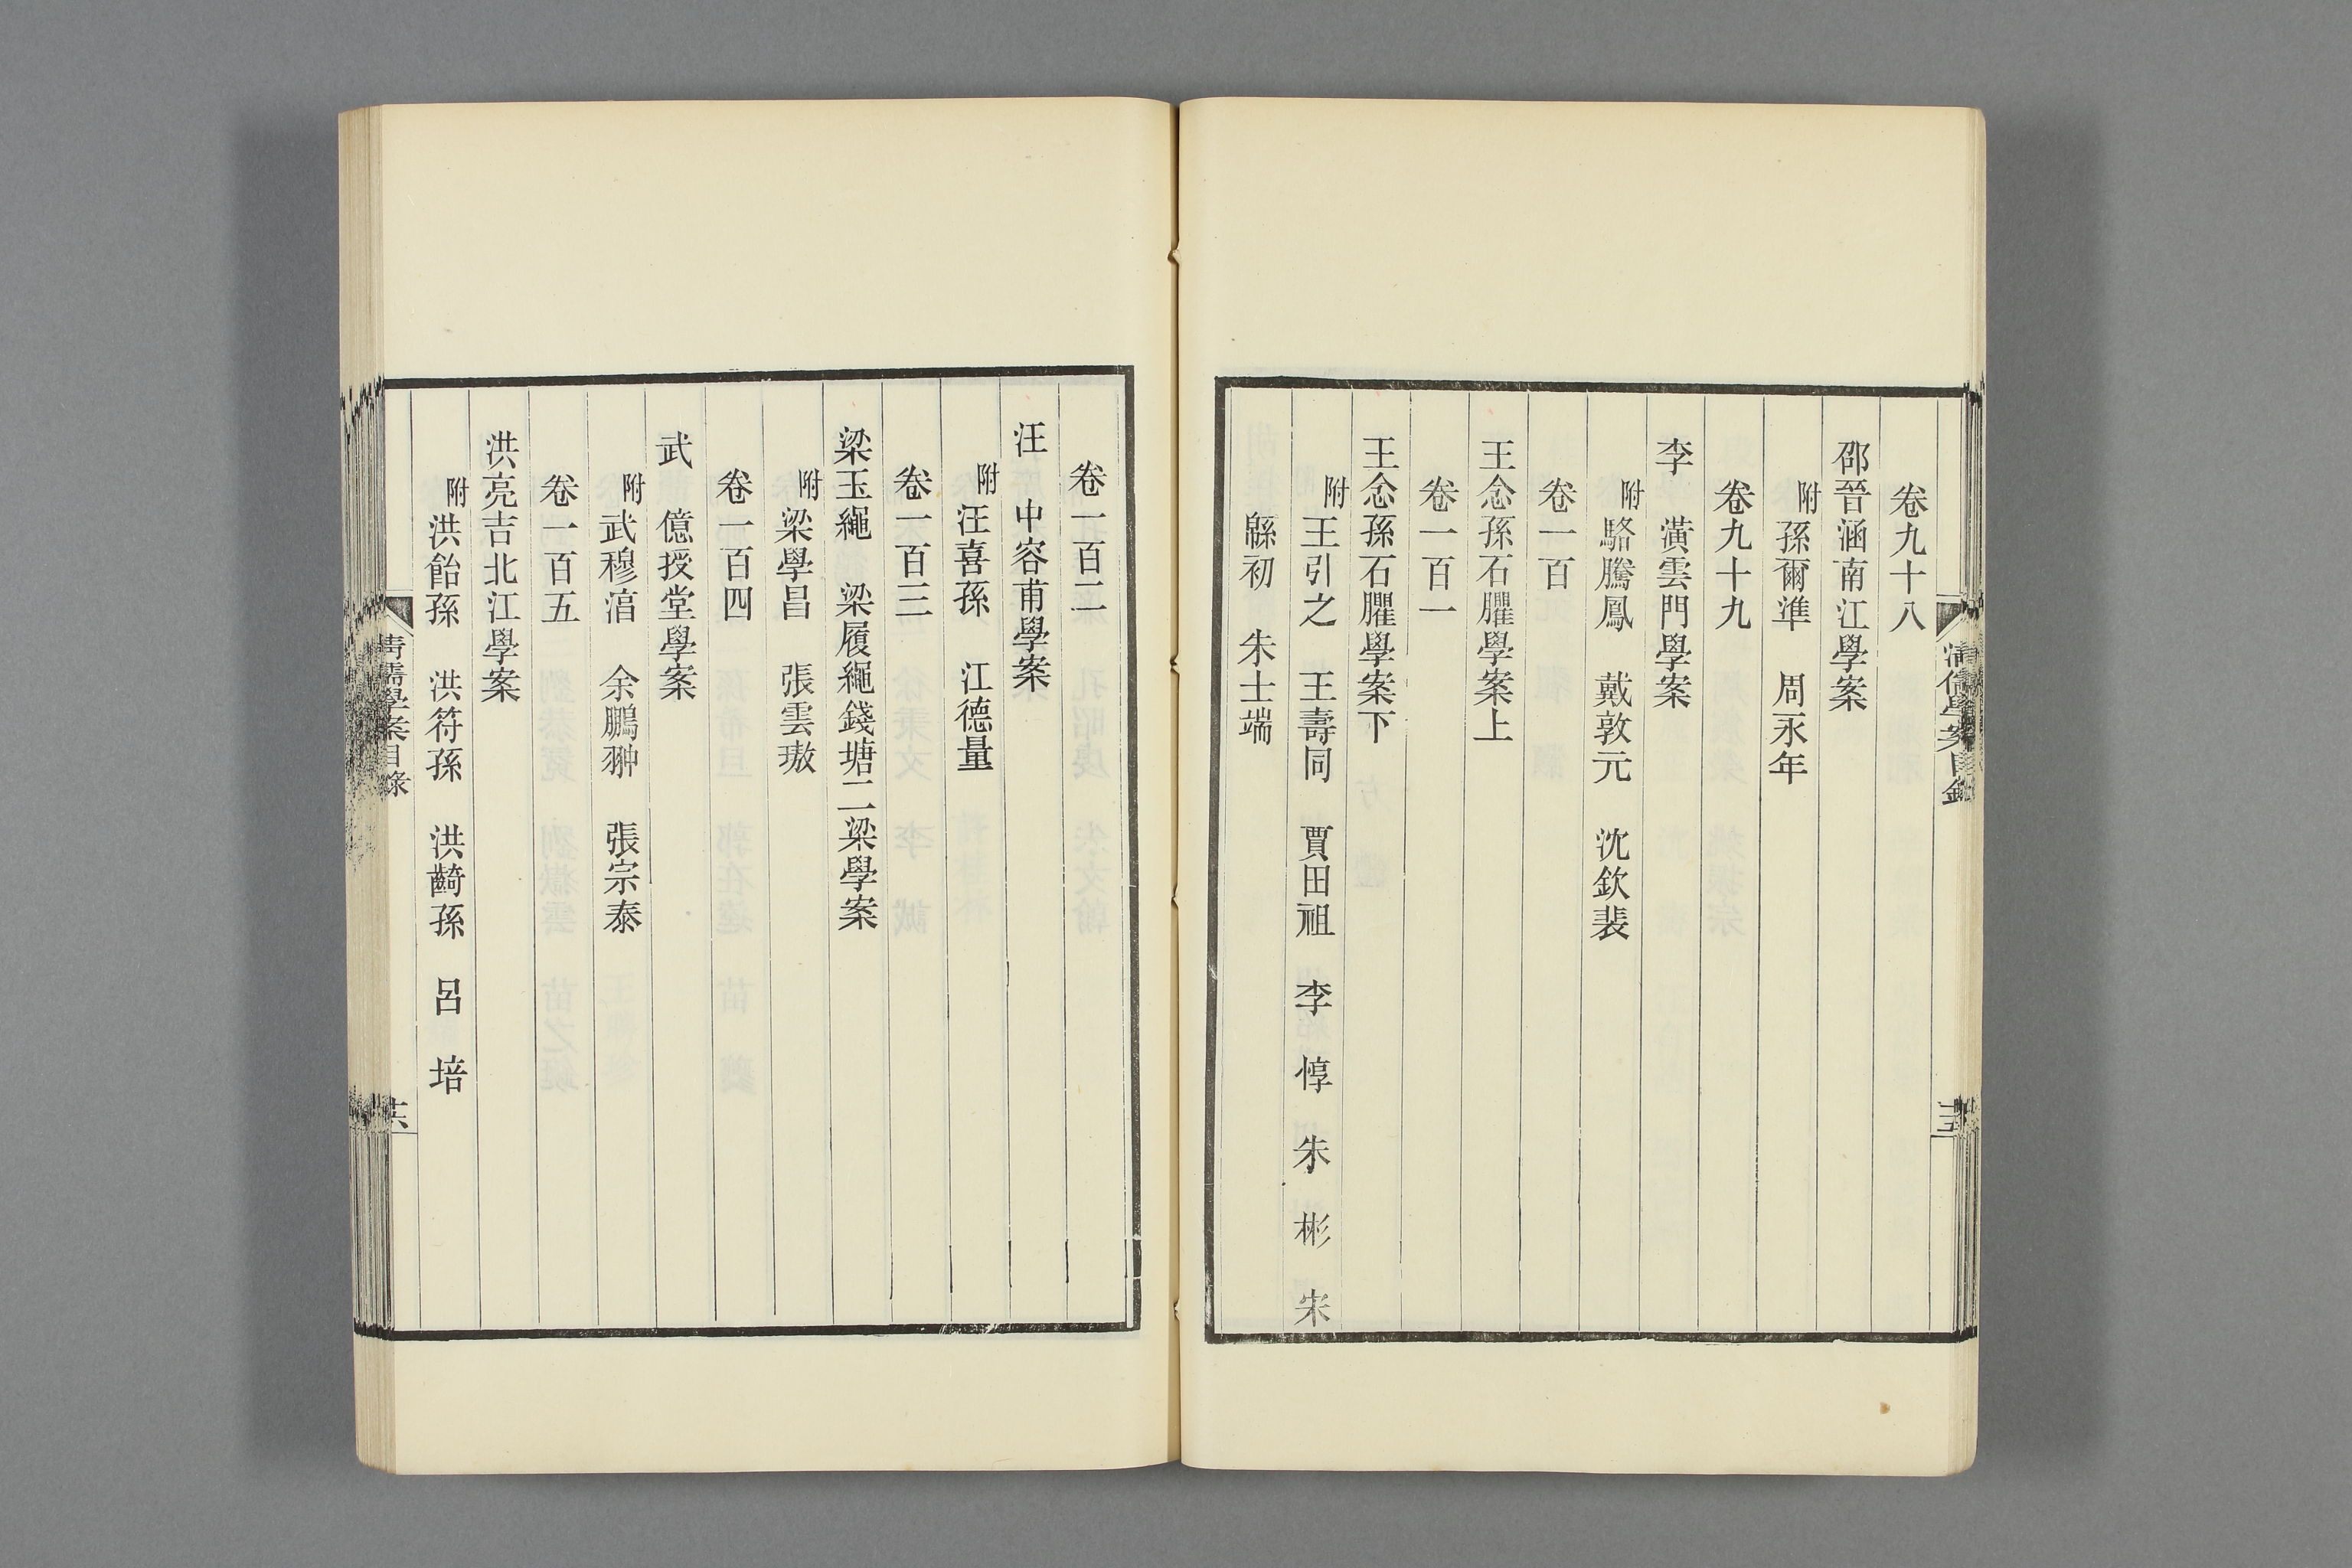 卷九十八
邵晉涵南江學案
附孫爾準　周永年
卷九十九
李　潢雲門學案
附駱騰鳳　戴敦元　沈欽裴
卷一百
王念孫石臞學案上
卷一百一
王念孫石臞學案下
附王引之　王壽同　賈田祖　李　惇　朱　彬　宋
緜初　朱士端
清儒學案目錄
卷一百二
汪　中容甫學案
附汪喜孫　江德量
卷一百三
梁玉繩　梁履繩錢塘二梁學案
附梁學昌　張雲璈
卷一百四
武　億授堂學案
附武穆淳　余鵬翀　張宗泰
卷一百五
洪亮吉北江學案
附洪飴孫　洪符孫　洪齮孫　呂　培
清儒學案目錄